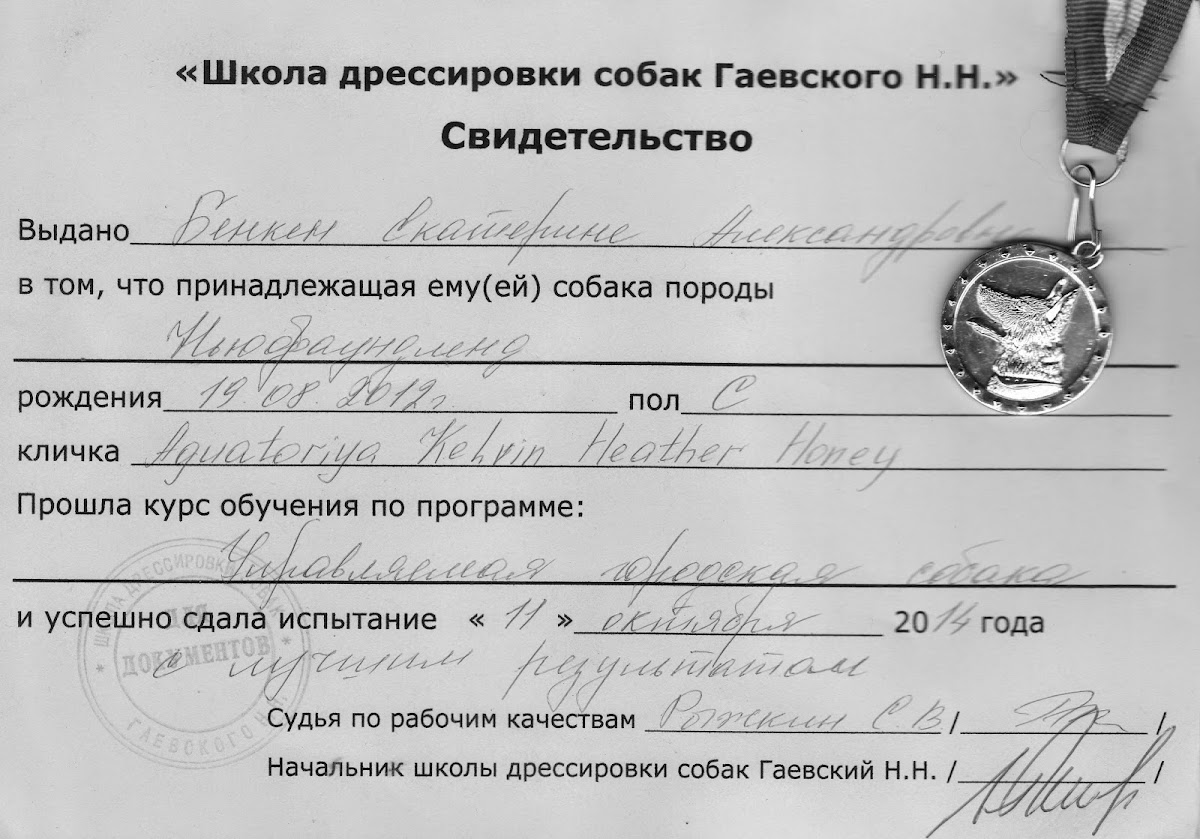 «Школа дрессировки собак Гаевского Н.Н.»
Свидетельство
Выдано Бенкен Екатерине Александровне
в том, что принадлежащая ему(ей) собака породы
Ньюфаундленд
рождения 19.08.2012г пол С
кличка Aquatoriya Kelvin Heather Honey
Прошла курс обучения по программе:
Управляемая городская собака
и успешно сдала испытание « 11 » октября 2014 года
с лучшим результатом
Судья по рабочим качествам Рыжкин С.В / /
Начальник школы дрессировки собак Гаевский Н.Н. / /
ШКОЛА ДРЕССИРОВКИ СОБАК
ДЛЯ
ДОКУМЕНТОВ
ГАЕВСКОГО Н.Н.